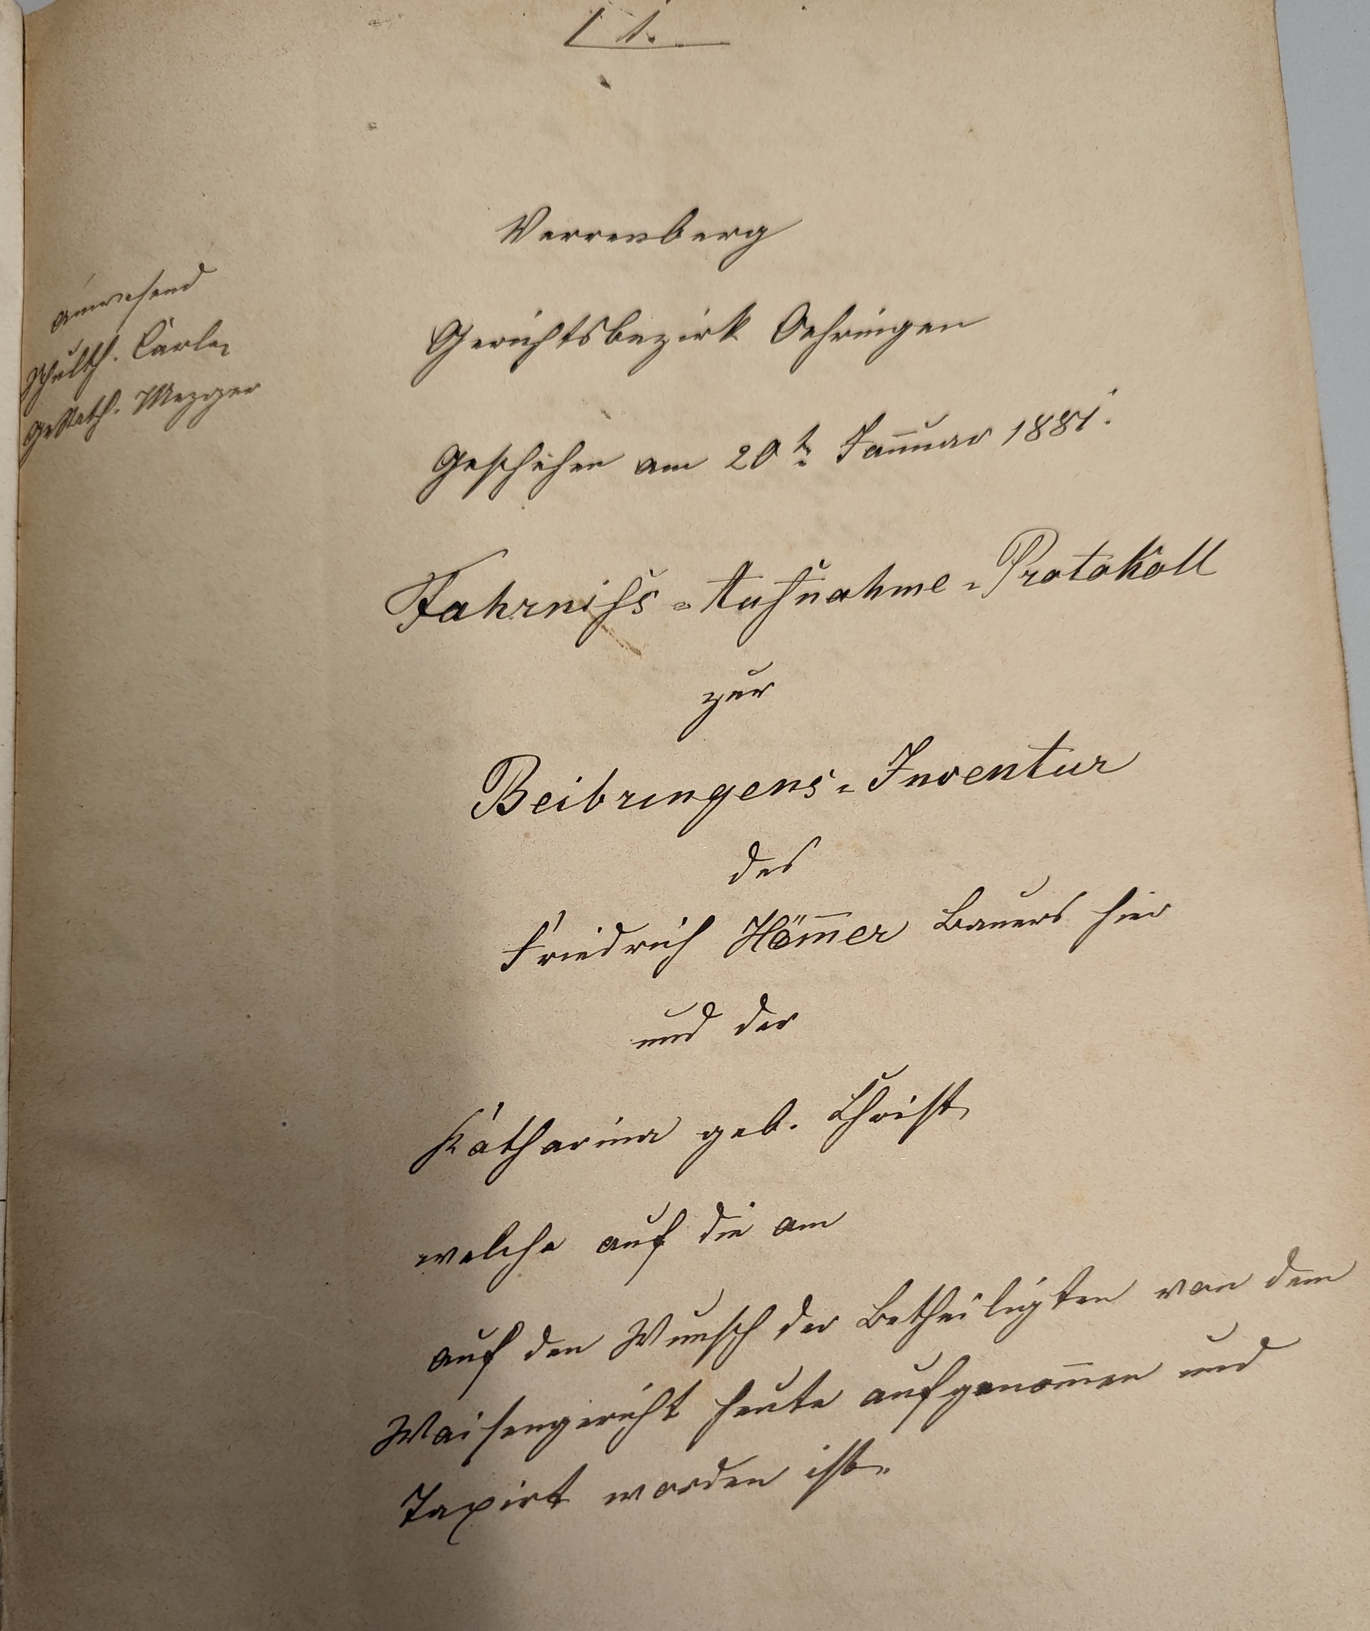 1.
Verrenberg
Anwesend
Schulth. Carle,
GeRath. Mezger
Gerichtsbezirk Oehringen
Geschehen am 20t. Januar 1881.
Fahrniß-Aufnahme-Protokoll
zur
Beibringens-Inventur
des
Friedrich Häm̅er Bauers hier
und der
Katharina geb. Christ,
welche auf die am
auf den Wunsch der Betheiligten von dem
Waisengericht heute aufgenom̅en und
Taxirt worden ist.